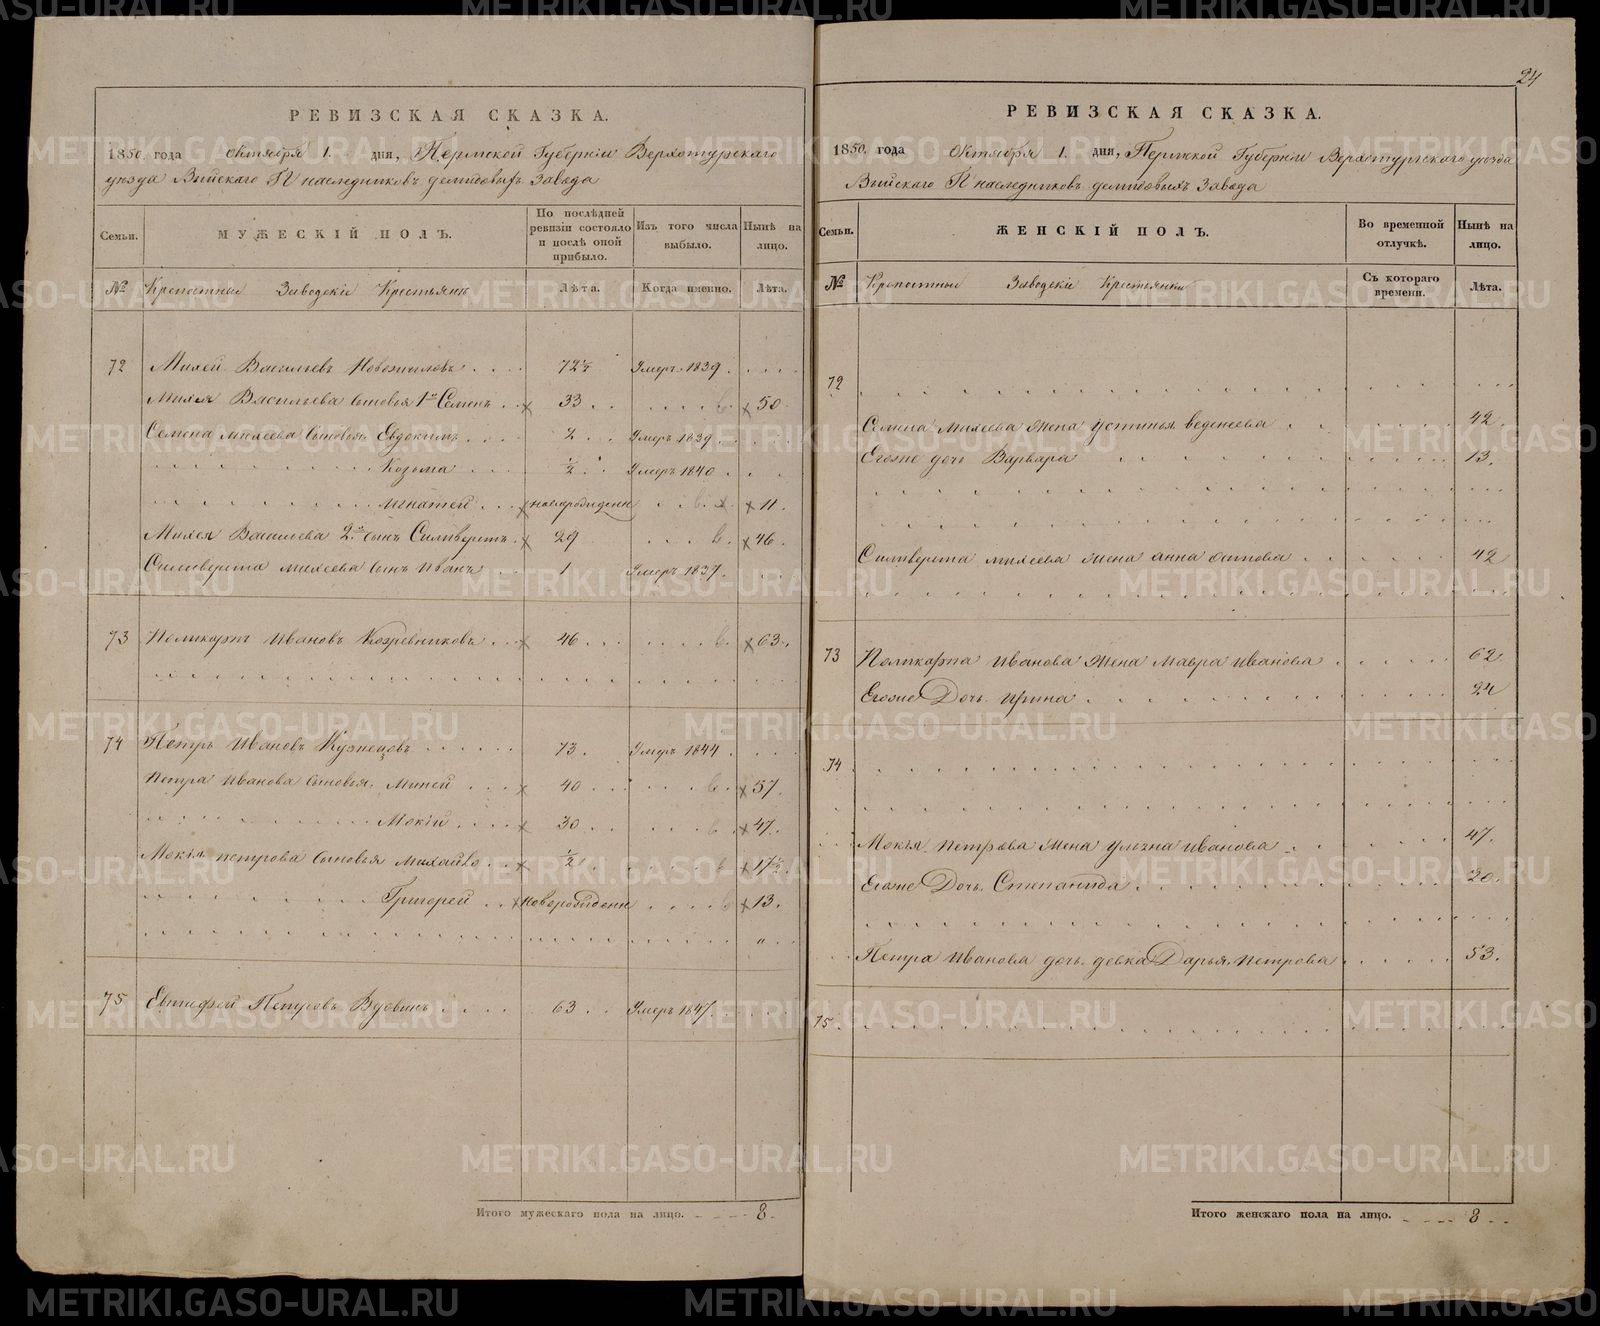 24
РЕВИЗСКАЯ СКАЗКА.
1850. года октября 1. дня, Пермской Губерніи Верхотурскаго
уезда Выйскаго Г<sup></sup> наследниковъ демидовыхъ Завода
Семьи. МУЖЕСКІЙ ПОЛЪ. По послѣдней ревизіи состояло и послѣ оной прибыло. Изъ того числа выбыло. Нынѣ на лицо.
№ Крепостные Заводскіе Крестьянъ Лѣта. Когда именно. Лѣта.
72 Михей Васильевъ Новожиловъ 72½ Умеръ 1839
Михея Васильева сыновья 1й Семенъ 33 50
Семена михеева сыновья Евдокимъ 2 Умеръ 1839
Козьма ½ Умеръ 1840
игнатей новорожденъ 11
Михея Васильева 2й сынъ Силиверстъ 29 46
Силиверста михеева сынъ иванъ 1 Умеръ 1837
73 Поликарпъ ивановъ Кожевниковъ 46 63
74 Петръ ивановъ Кузнецовъ 73 Умеръ 1844
Петра иванова сыновья Миней 40 57
Мокій 30 47
Мокія петрова сыновья михайло ½ 17½
Григорей новорожденъ 13
75 Евтифей Петровъ Вдовинъ 63 Умеръ 1847
Итого мужескаго пола на лицо. 8
РЕВИЗСКАЯ СКАЗКА.
1850. года октября 1. дня, Пермской Губерніи Верхотурскаго уезда
Выйскаго наследниковъ демидовыхъ Завода
Семьи. ЖЕНСКІЙ ПОЛЪ. Во временной отлучкѣ. Нынѣ на лицо.
№ Крепостные Заводскіе Крестьянки Съ котораго времени. Лѣта.
72
Семена михеева жена устинья веденеева 42
Егоже дочь Варвара 13
Силиверста михеева жена анна осипова 42
73 Поликарпа иванова жена мавра иванова 62
Егоже Дочь ирина 24
74
Мокія Петрова жена улична иванова 47
Егоже Дочь Степанида 20
Петра иванова дочь девка Дарья Петрова 53
75
Итого женскаго пола на лицо. 8
METRIKI.GASO-URAL.RU